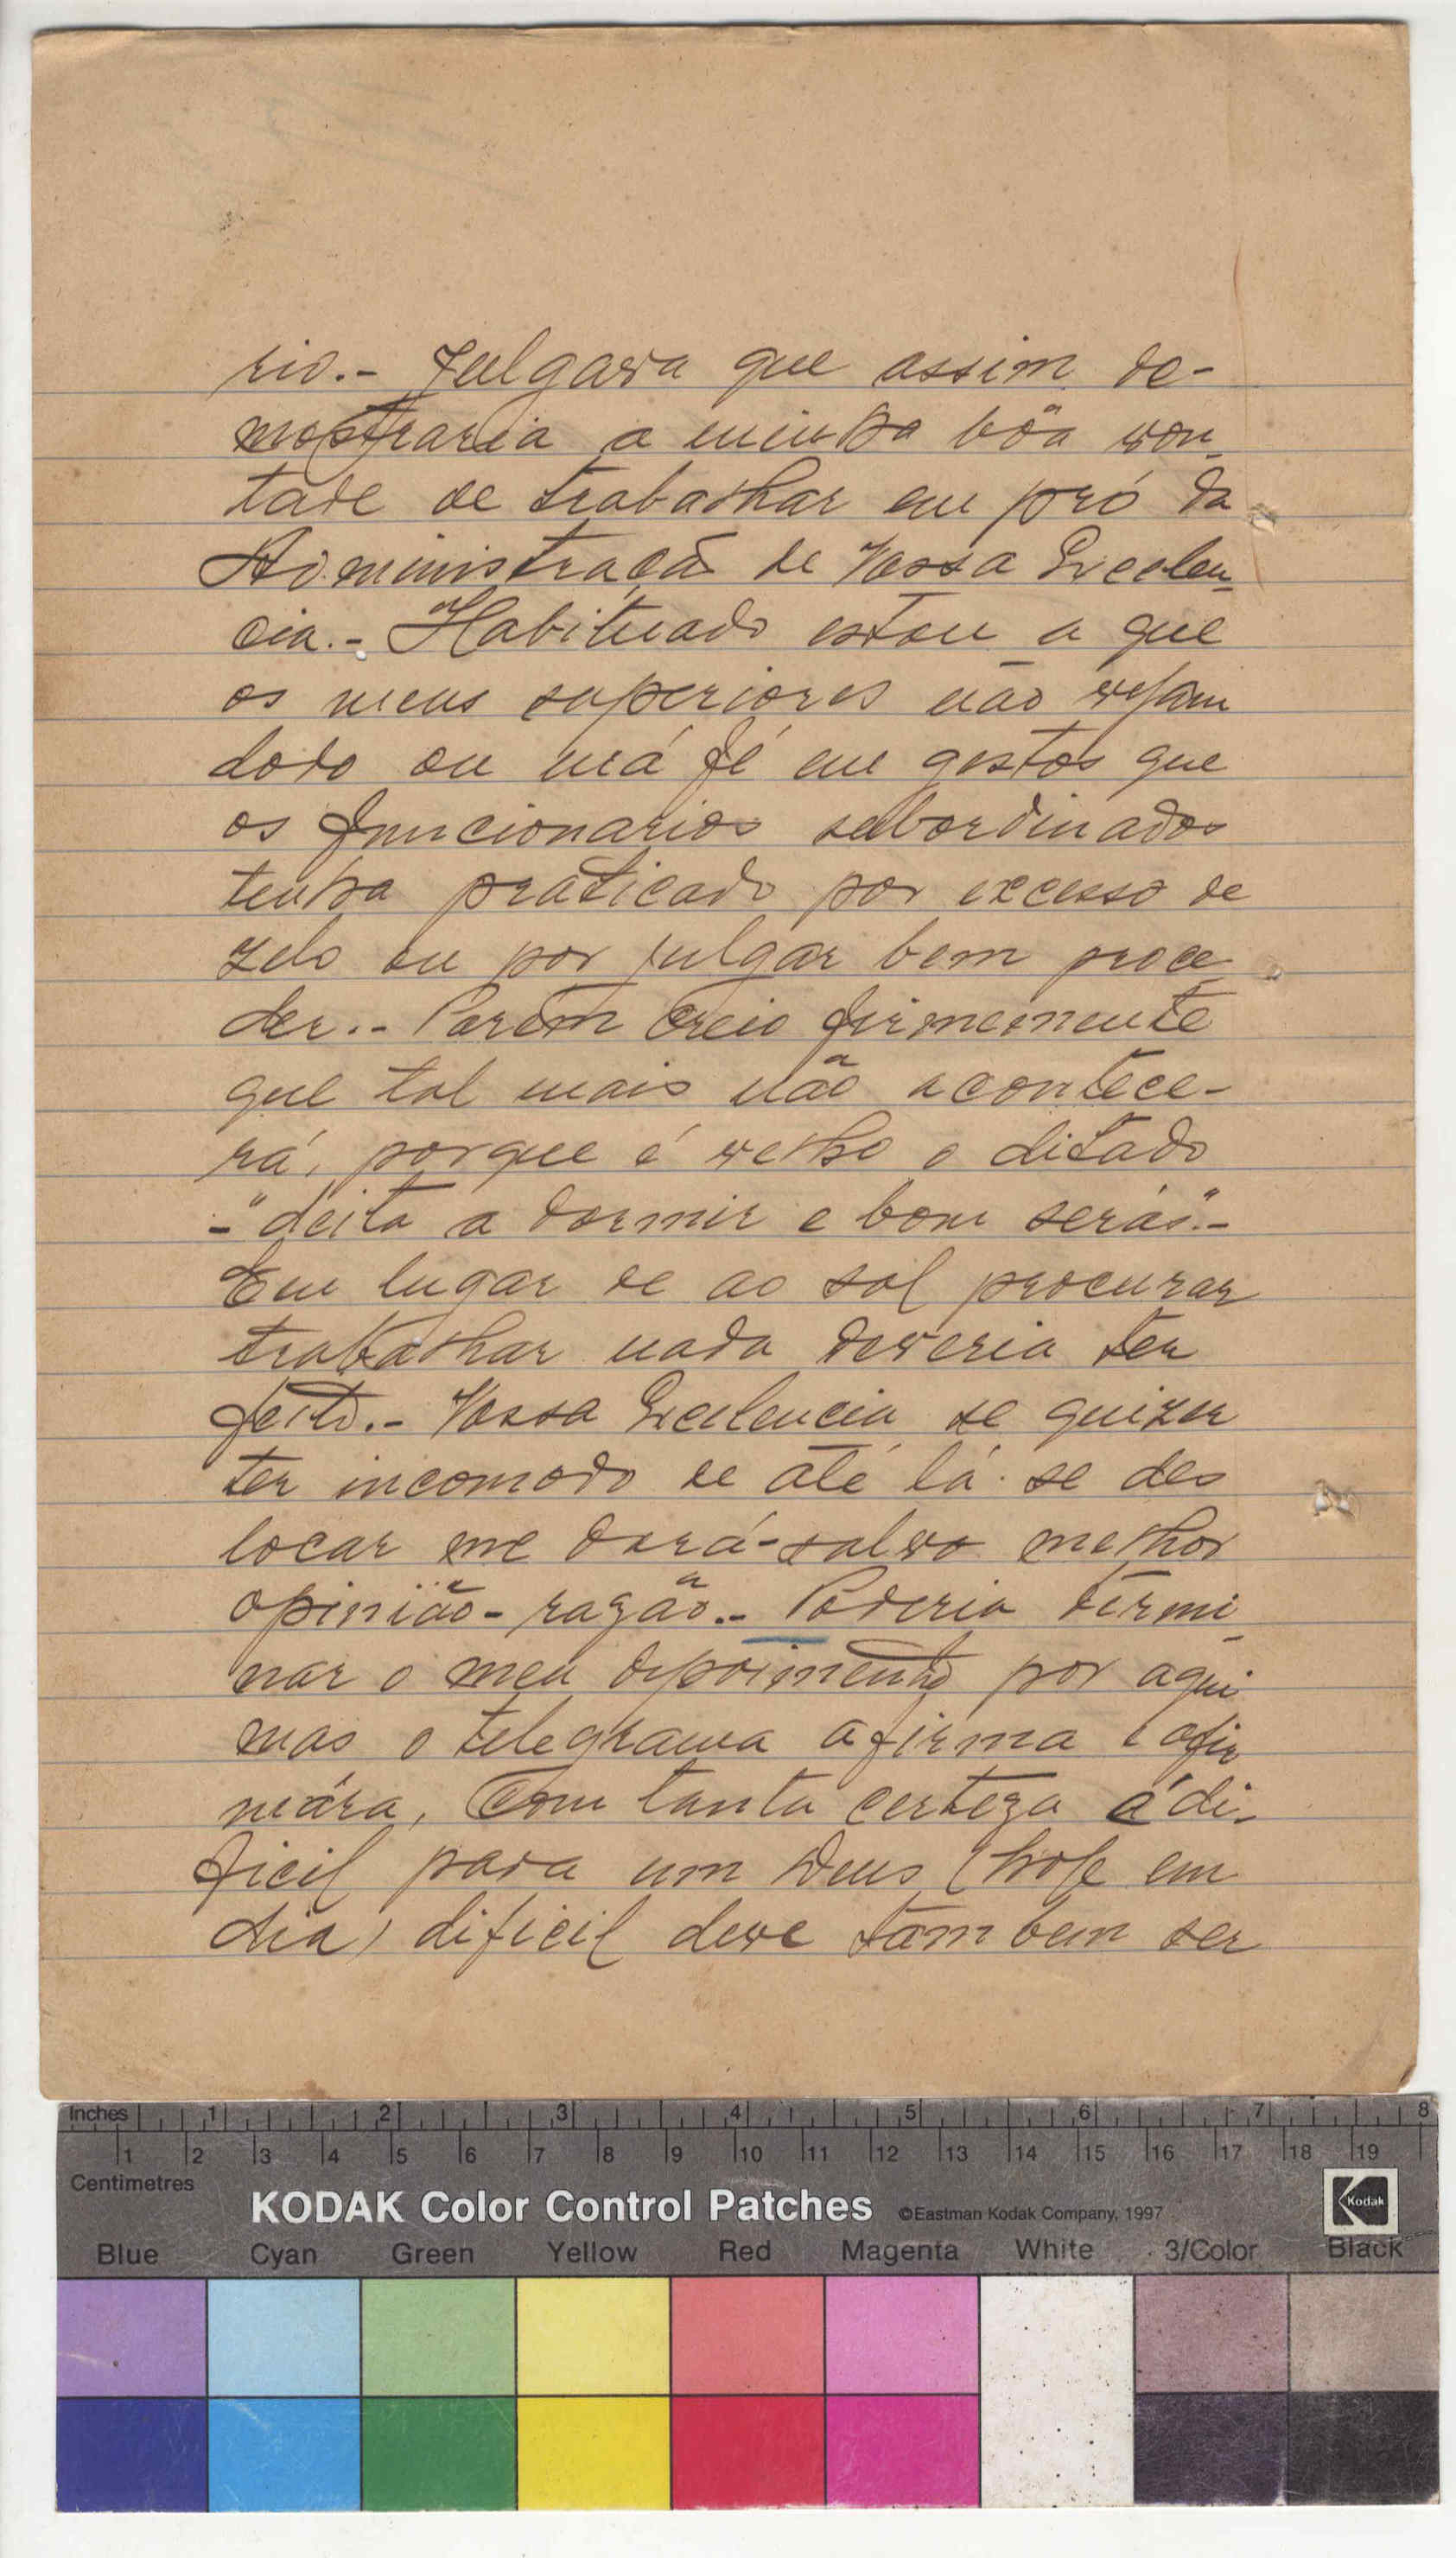 rio.- Julgava que assim de-
mostraria a minha bôa von-
tade de trabalhar em pró da
Administração de Vossa Excelen-
cia.- Habituado estou a que
os meus superiores não vejam
dolo ou má fé em gestos que
os funcionarios subordinados
tenha praticado por excesso de
zelo ou por julgar bem proce-
der.- Porem creio firmemente
que tal mais não acontece-
rá, porque é velho o ditado
-"deita a dormir e bom serás".-
Em lugar de ao sol procurar
trabalhar nada deveria ter
feito.- Vossa Excelencia se quizer
ter incomodo de até lá se des
locar me dará-salvo melhor
opinião-razão.- Poderia termi-
nar o meu depoimento por aqui
mas o telegrama afirma e afir
mára, com tanta certeza é di-
ficil para um Deus (hoje em
dia) dificil deve tambem ser
Inches 1 2 3 4 5 6 7 8
1 2 3 4 5 6 7 8 9 10 11 12 13 14 15 16 17 18 19
Centimetres
KODAK Color Control Patches ©Eastman Kodak Company, 1997 Kodak
Blue Cyan Green Yellow Red Magenta White 3/Color Black